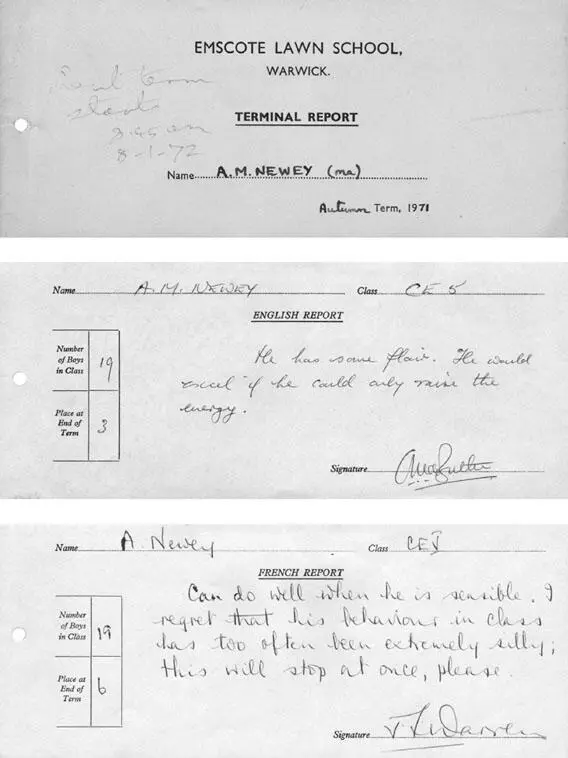 EMSCOTE LAWN SCHOOL,
WARWICK.
term
starts
8-1-72
TERMINAL REPORT
Name A.M. NEWEY (ma)
Autumn Term, 1971
Name A. M. NEWEY Class CE 5
ENGLISH REPORT
Number
of Boys
in Class 19
Place at
End of
Term 3
He has some flair. He would
excel if he could only raise the
energy.
Signature
Name A. Newey Class CE5
FRENCH REPORT
Number
of Boys
in Class 19
Place at
End of
Term 6
Can do well when he is sensible. I
regret that his behaviour in class
has too often been extremely silly;
this will stop at once, please.
Signature Warren